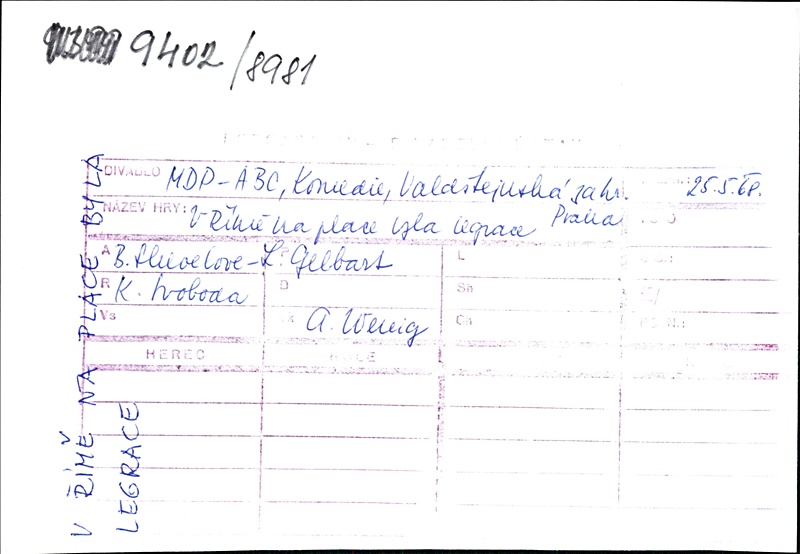 9402/8981
DIVADLO MDP-ABC, Komedie, Valdštejnská zahr. 25.5.68.
NÁZEV HRY: V Římě na place byla legrace Praha
A B. Shevelove-L. Gelbart L
R K. Svoboda D Sh
Vs A. Wenig Ch
HEREC ROLE
V ŘÍMĚ NA PLACE BYLA
LEGRACE